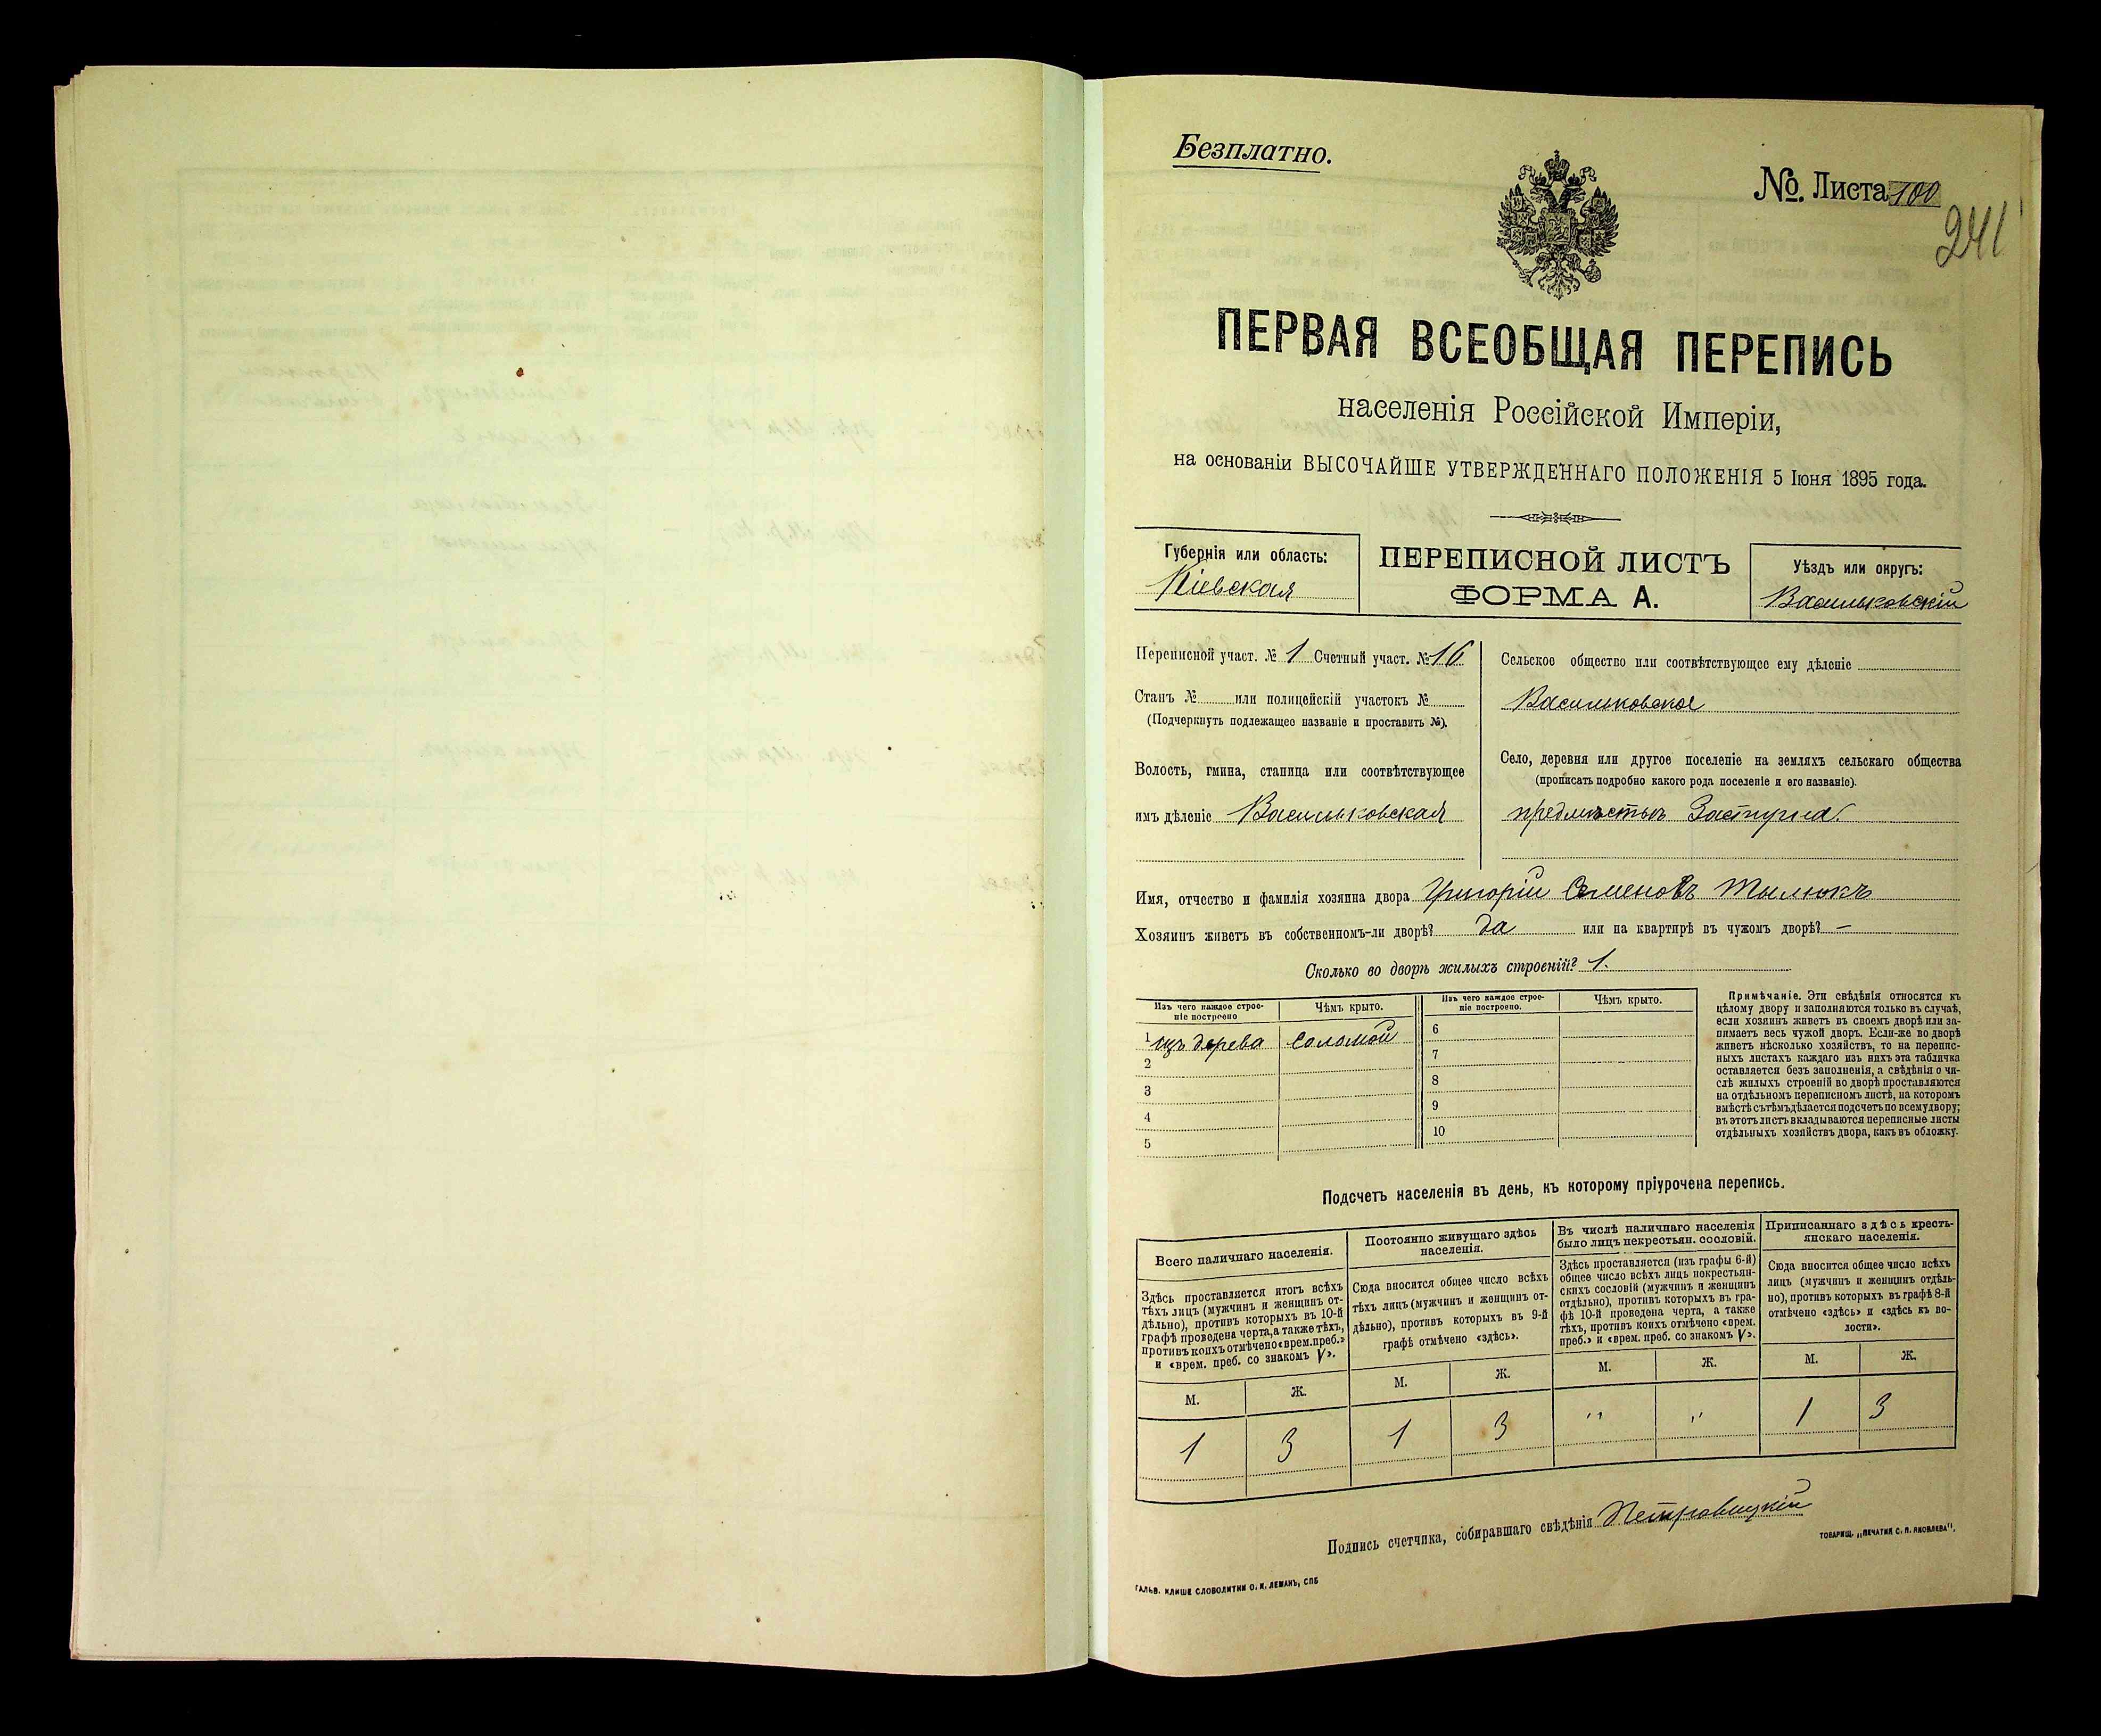 Безплатно.
№. Листа 100
241
ПЕРВАЯ ВСЕОБЩАЯ ПЕРЕПИСЬ
населенія Россійской Имперіи,
на основаніи ВЫСОЧАЙШЕ УТВЕРЖДЕННАГО ПОЛОЖЕНІЯ 5 Іюня 1895 года.
Губернія или область:
Кіевская
ПЕРЕПИСНОЙ ЛИСТЪ
ФОРМА А.
Уѣздъ или округъ:
Васильковскій
Переписной участ. № 1 Счетный участ. № 16
Станъ № или полицейскій участокъ №
(Подчеркнуть подлежащее названіе и проставить №).
Волость, гмина, станица или соотвѣтствующее
имъ дѣленіе Васильковская
Сельское общество или соотвѣтствующее ему дѣленіе
Васильковское
Село, деревня или другое поселеніе на земляхъ сельскаго общества
(прописать подробно какого рода поселеніе и его названіе).
предмѣстье
Имя, отчество и фамилія хозяина двора Григорій Семеновъ Тылюкъ
Хозяинъ живетъ въ собственномъ-ли дворѣ? да или на квартирѣ въ чужомъ дворѣ? —
Сколько во дворѣ жилыхъ строеній? 1.
Изъ чего каждое строе-
ніе построено
Чѣмъ крыто.
Изъ чего каждое строе-
ніе построено.
Чѣмъ крыто.
1 изъ дерева соломой
2
3
4
5
6
7
8
9
10
Примѣчаніе. Эти свѣдѣнія относятся къ
цѣлому двору и заполняются только въ случаѣ,
если хозяинъ живетъ въ своемъ дворѣ или за-
нимаетъ весь чужой дворъ. Если-же во дворѣ
живетъ нѣсколько хозяйствъ, то на перепис-
ныхъ листахъ каждаго изъ нихъ эта табличка
оставляется безъ заполненія, а свѣдѣнія о чи-
слѣ жилыхъ строеній во дворѣ проставляются
на отдѣльномъ переписномъ листѣ, на которомъ
вмѣстѣ съ тѣмъ дѣлается подсчетъ по всему двору;
въ этотъ листъ вкладываются переписные листы
отдѣльныхъ хозяйствъ двора, какъ въ обложку.
Подсчетъ населенія въ день, къ которому пріурочена перепись.
Всего наличнаго населенія.
Здѣсь проставляется итогъ всѣхъ
тѣхъ лицъ (мужчинъ и женщинъ от-
дѣльно), противъ которыхъ въ 10-й
графѣ проведена черта, а также тѣхъ,
противъ коихъ отмѣчено «врем. преб.»
и «врем. преб. со знакомъ V».
М. Ж.
1 3
Постоянно живущаго здѣсь
населенія.
Сюда вносится общее число всѣхъ
тѣхъ лицъ (мужчинъ и женщинъ от-
дѣльно), противъ которыхъ въ 9-й
графѣ отмѣчено «здѣсь».
М. Ж.
1 3
Въ числѣ наличнаго населенія
было лицъ некрестьян. сословій.
Здѣсь проставляется (изъ графы 6-й)
общее число всѣхъ лицъ некрестьян-
скихъ сословій (мужчинъ и женщинъ
отдѣльно), противъ которыхъ въ гра-
фѣ 10-й проведена черта, а также
тѣхъ, противъ коихъ отмѣчено «врем.
преб.» и «врем. преб. со знакомъ V».
М. Ж.
" "
Приписаннаго здѣсь кресть-
янскаго населенія.
Сюда вносится общее число всѣхъ
лицъ (мужчинъ и женщинъ отдѣль-
но), противъ которыхъ въ графѣ 8-й
отмѣчено «здѣсь» и «здѣсь къ во-
лости».
М. Ж.
1 3
Подпись счетчика, собиравшаго свѣдѣнія Петровицкій
ТОВАРИЩ. „ПЕЧАТНЯ С. П. ЯКОВЛЕВА".
ГАЛЬВ. КЛИШЕ СЛОВОЛИТНИ О. И. ЛЕМАНЪ, СПБ